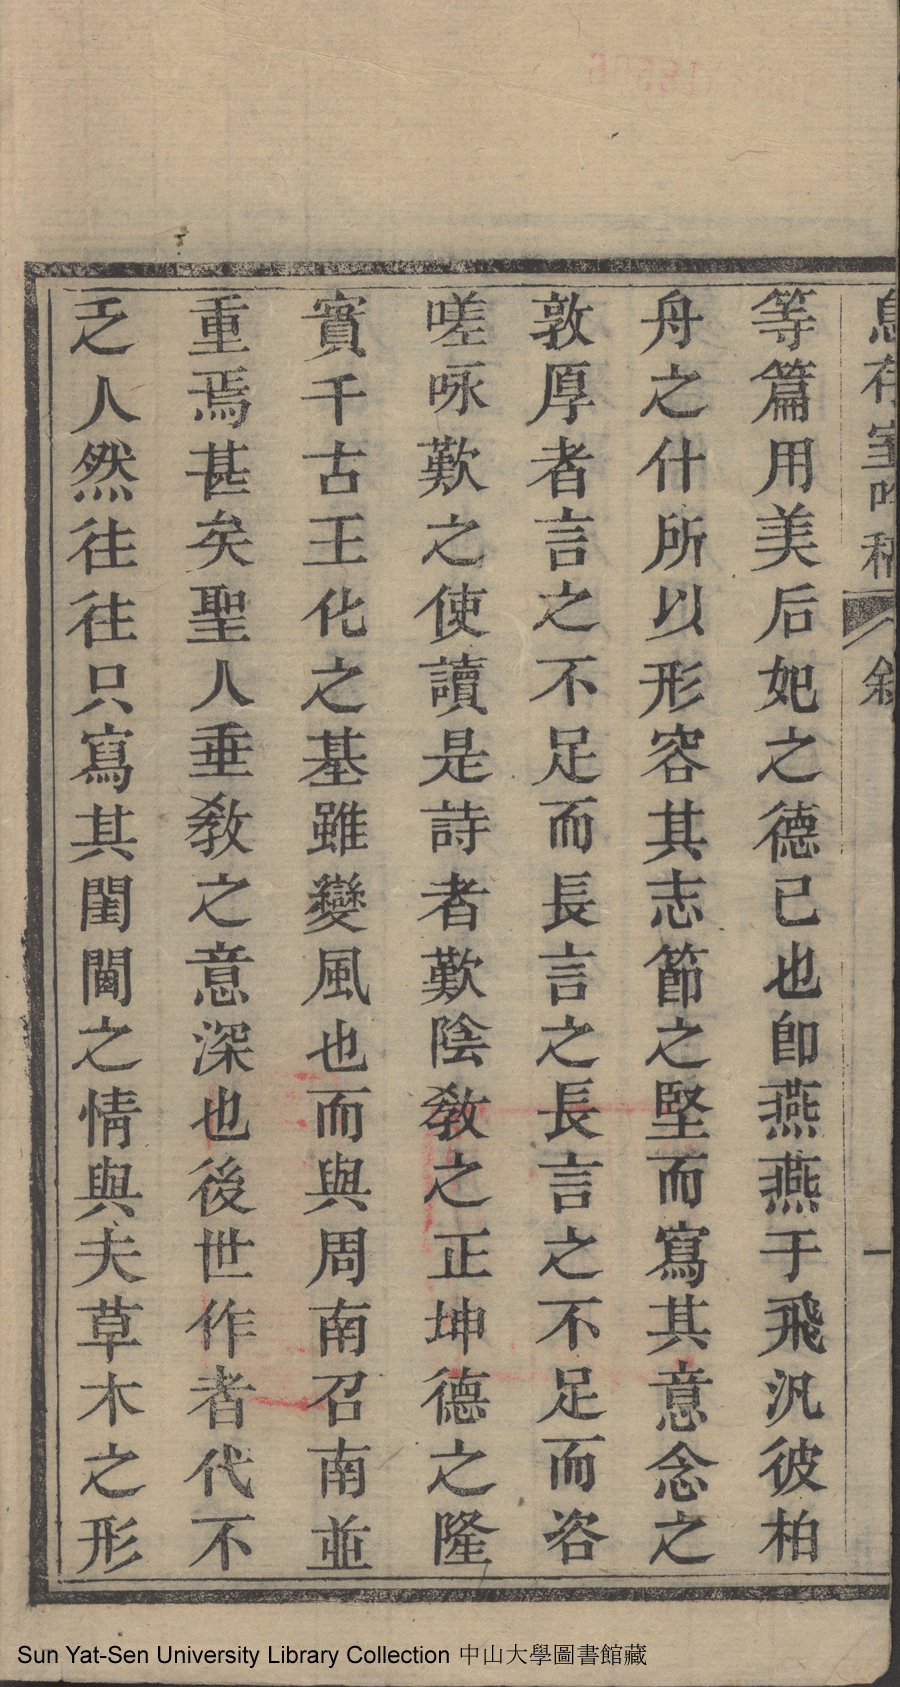 息存室吟稿 敘 一
等篇用美后妃之德已也卽燕燕于飛汎彼柏
舟之什所以形容其志節之堅而寫其意念之
敦厚者言之不足而長言之長言之不足而咨
嗟咏歎之使讀是詩者歎陰敎之正坤德之隆
實千古王化之基雖變風也而與周南召南並
重焉甚矣聖人垂敎之意深也後世作者代不
乏人然往往只寫其閨閫之情與夫草木之形
Sun Yat-Sen University Library Collection 中山大學圖書館藏